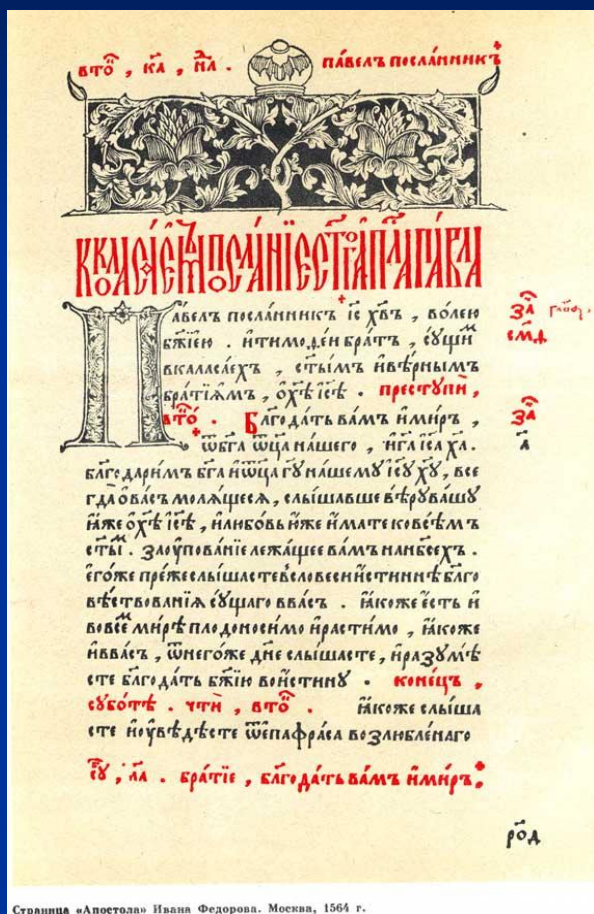 вто҃ , к҃а , н҃ла . па́велъ посла́нникъ
ккаласаемъ посланїе ст҃гѡ ап҃ла павла
Па́велъ посла́нникъ і҃с х҃въ , во́лею
б҃жїею . и҆тимоѳе́и бра́тъ , су́щиⷨ
вкаласа́ехъ , ст҃ы́мъ и҆вѣ́рнымъ
бра́тїямъ , ѡ҆х҃ѣ і҆с҃ѣ . престꙋпѝ ,
вто҃ . Бл҃года́ть ва́мъ и҆ми́ръ ,
ѿб҃га ѿц҃а на́шего , и҆г҃а і҆с҃а х҃а .
бл҃годари́мъ б҃га и҆ѿц҃а г҃у на́шему і҆с҃ꙋ х҃ꙋ , все
гда̀ ѡ҆ва́съ моля́щеся , слы́шавше вѣ́рꙋ ва́шꙋ
ꙗ҆́же ѡ҆х҃ѣ і҆с҃ѣ , и҆любо́вь ю҆́же и҆́мате ковсѣ́мъ
ст҃ы́мⷨ . заоу҆пова́нїе лежа́щее ва́мъ нанб҃сехъ .
е҆го́же пре́же слы́шасте в҆словесѝ и҆́стиннѣ бл҃го
вѣствова́нїѧ су́щаго вва́съ . ꙗ҆́коже є҆́сть и҆
вовсеⷨ ми́рѣ плодоноси́мо и҆расти́мо , ꙗ҆́коже
и҆вва́съ , ѿнего́же дн҃е слы́шасте , и҆разꙋмѣ́
сте бл҃года́ть б҃жїю вои҆́стинꙋ . коне́цъ ,
сꙋбо́тѣ . чтѝ , вто҃ . ꙗ҆́коже слы́ша
сте и҆оу҆вѣ́дѣсте ѿепафра́са возлю́бленаго
є҃ꙋ , л҃а . бра́тїе , бл҃года́ть ва́мъ и҆ми́ръ :
з҃а
см҃д
з҃а
а҃
ро҃д
Страница «Апостола» Ивана Федорова. Москва, 1564 г.